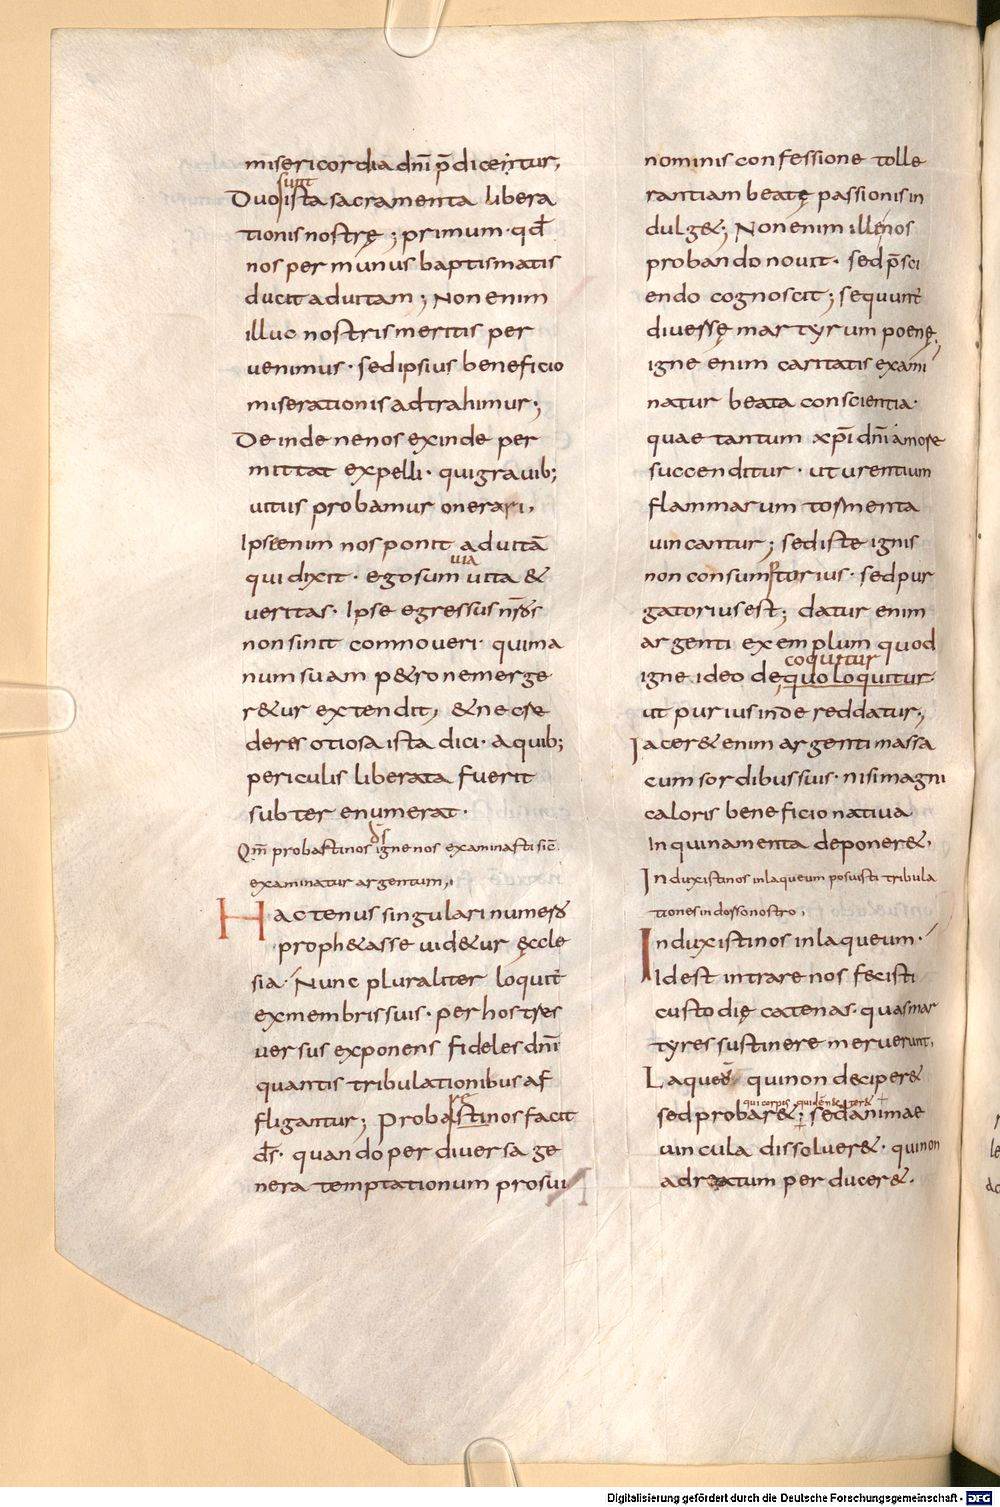 misericordia dn̄i p̄dicentur,
sunt
Duo ista sacramenta libera
tionis nostrę; primum· qđ
nos per munus baptismatis
ducit ad uitam; Non enim
illuc nostris meritis per
uenimus· sed ipsius beneficio
miserationis adtrahimur;
De inde ne nos exinde per
mittat expelli· qui grauib;
uitiis probamur onerari,
Ipse enim nos ponit ad uitā
uia
qui dixit· ego sum uita &
ueritas· Ipse egressus nr̄os
non sinit commoueri· qui ma
num suam p&ro ne merge
r&ur extendit, & ne cre
deres otiosa ista dici· a quib;
periculis liberata fuerit
subter enumerat·
Qm̄ probasti nos ds̄ igne nos examinasti sic̄
examinatur argentum,
Hactenus singulari numero
proph&asse uid&ur ęccle
sia· Nunc pluraliter loquit̄
ex membris suis· per hos tres
uersus exponens fideles dn̄i
quantis tribulationibus af
fligantur; Probasti nos facit
ds̄· quando per diuersa ge
nera temptationum pro sui
nominis confessione tolle
rantiam beatę passionis in
dulg&; Non enim ille nos
probando nouit· sed p̄sci
endo cognoscit; sequunt̄
diuersę martyrum poenę,
igne enim caritatis exami
natur beata conscientia·
quae tantum xp̄i dn̄i amore
succenditur· ut urentium
flammarum tormenta
uincantur; sed iste ignis
non consumptorius· sed pur
gatorius est; datur enim
argenti exemplum quod
coquitur
igne ideo dequoloquitur·
ut purius inde reddatur;
Iacer& enim argenti massa
cum sordibus suis· nisi magni
caloris beneficio natiua
Inquinamenta deponer&,
Induxisti nos in laqueum posuisti tribula
tiones in dosso nostro,
Induxisti nos in laqueum·
Id est intrare nos fecisti
custodię catenas· quas mar
tyres sustinere meruerunt,
Laqueo qui non deciper&
sed probar&; sed animae
uincula dissoluer&· qui non
ad reatum perducer&·
Digitalisierung gefördert durch die Deutsche Forschungsgemeinschaft - DFG